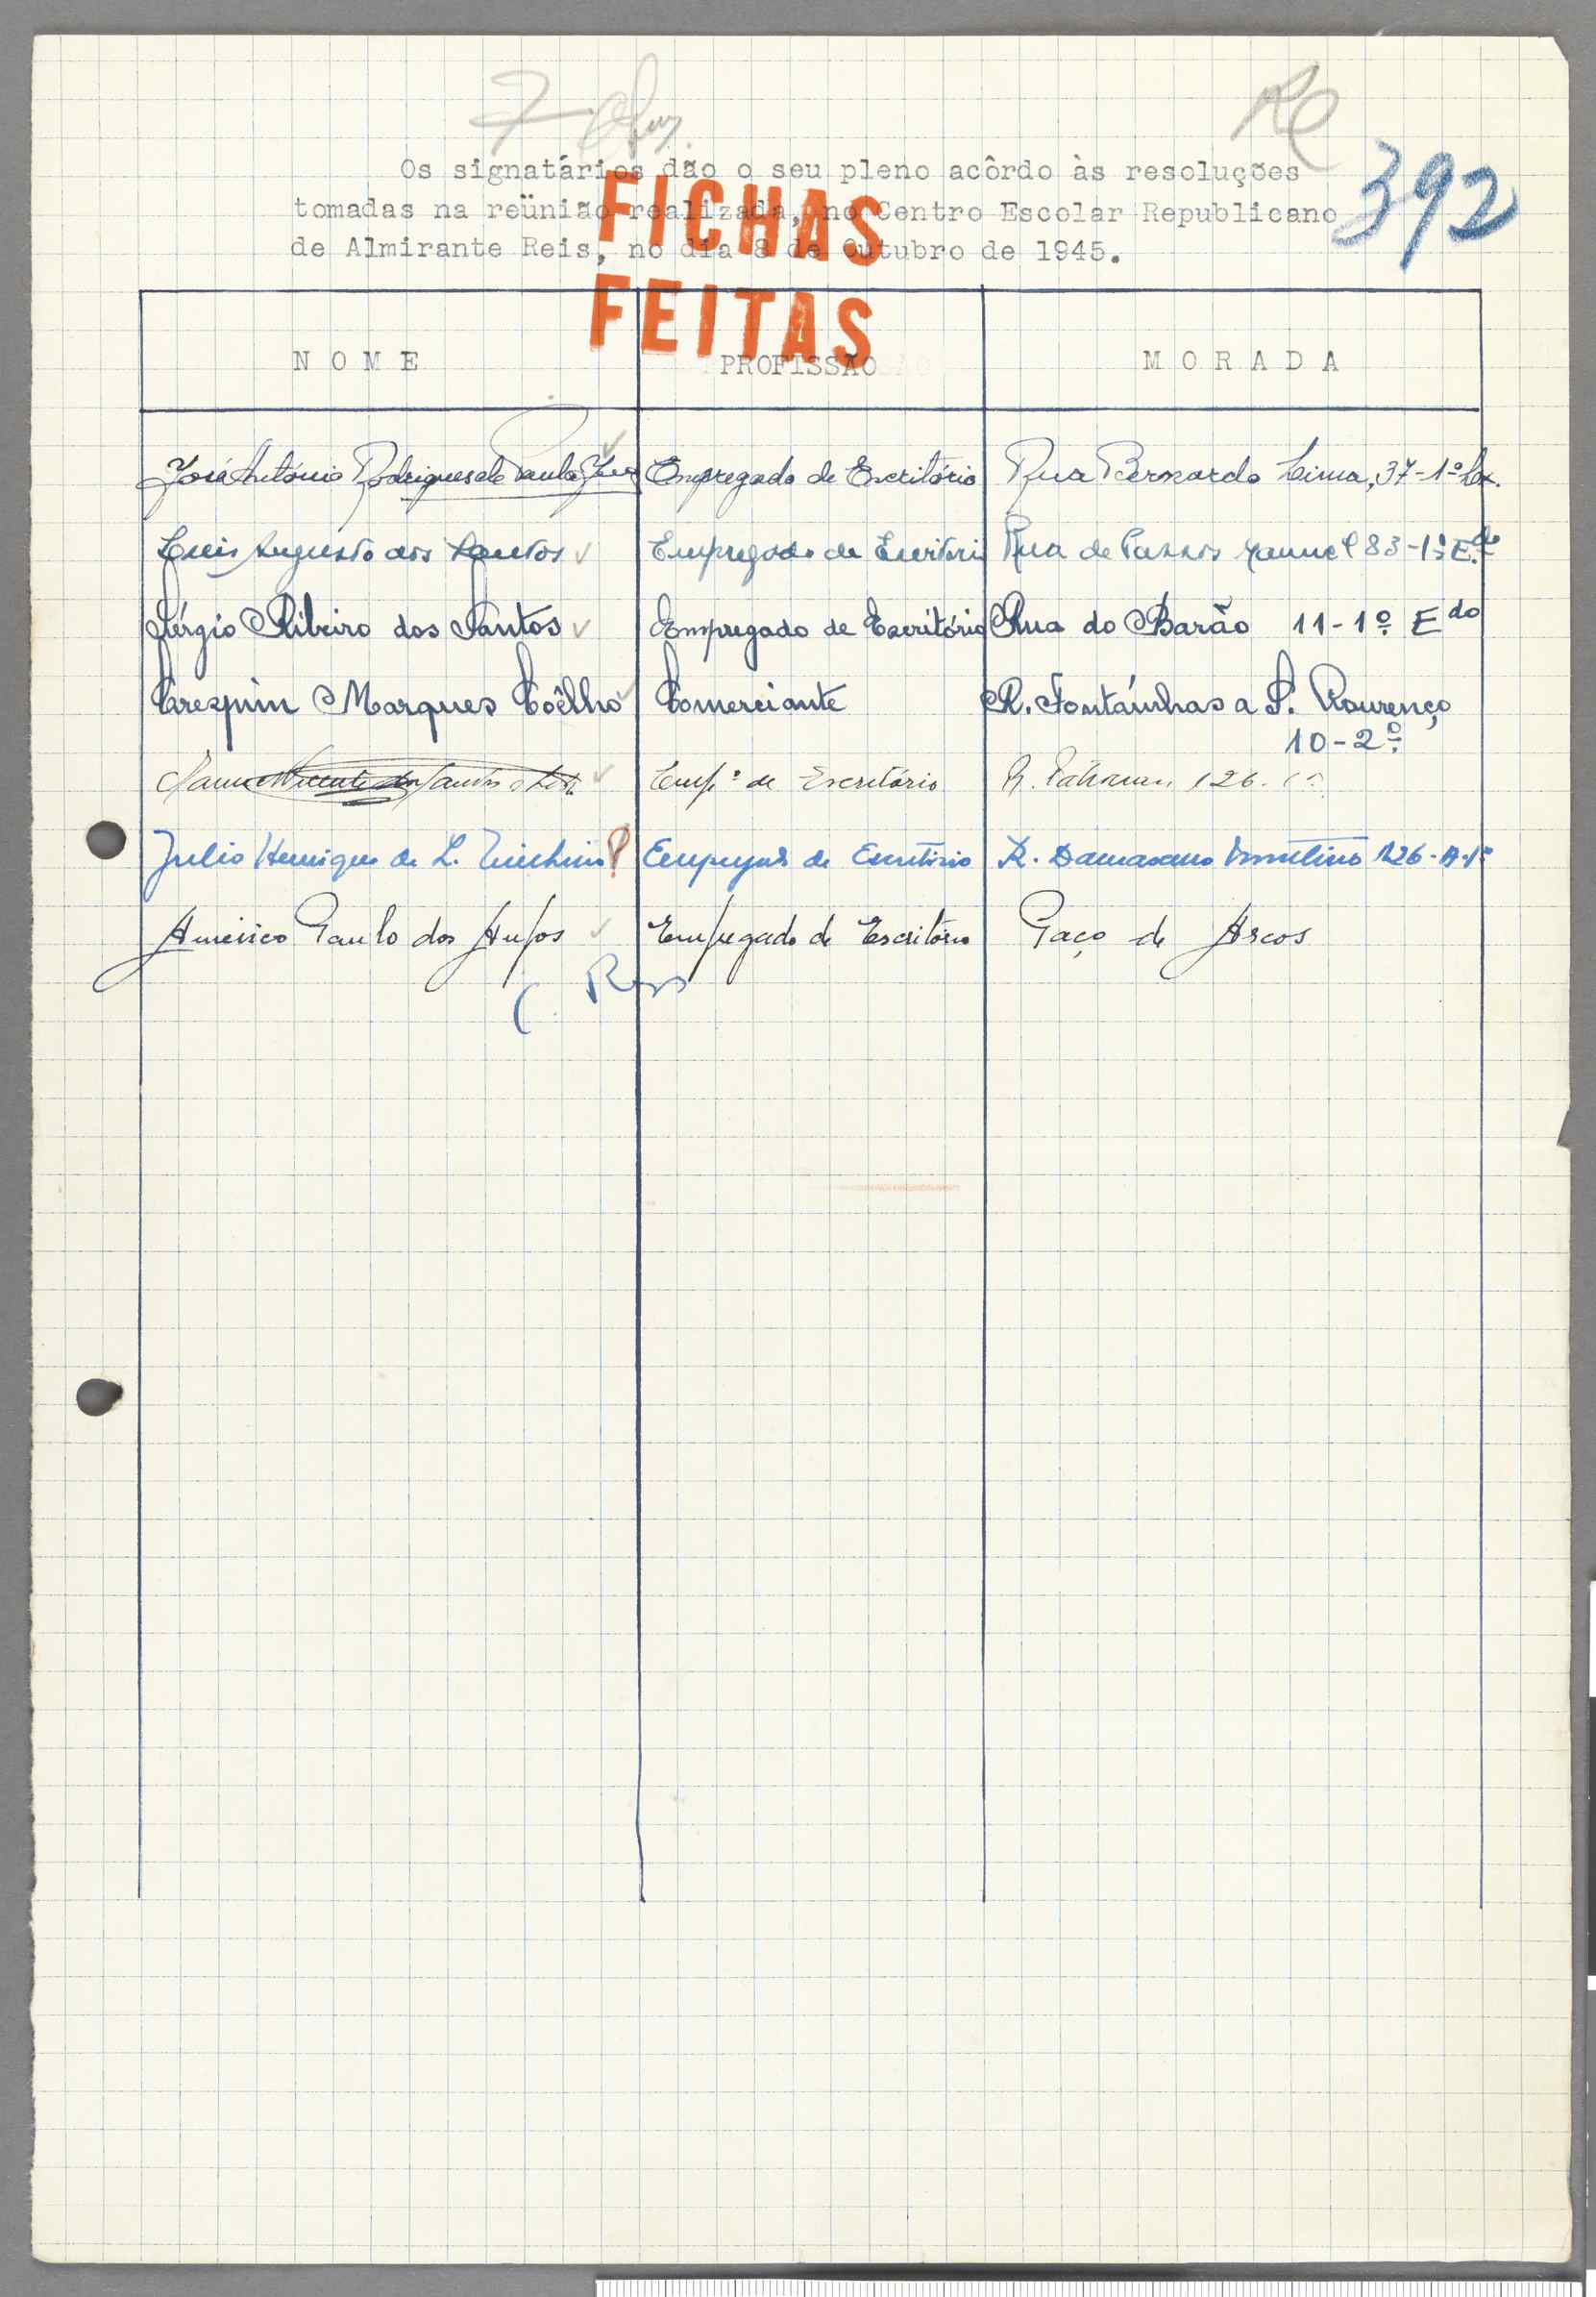 392
Os signatários dão o seu pleno acôrdo às resoluções
tomadas na reünião realizada, no Centro Escolar Republicano
de Almirante Reis, no dia 8 de Outubro de 1945.
FICHAS
FEITAS
NOME PROFISSÃO MORADA
José António Rodrigues de Paula Empregado de Escritório Rua Bernardo Lima, 37-1º Lx.
Luis Augusto dos Santos Empregado de Escritori Rua de Passos Manuel 83-1º E.do
Sérgio Ribeiro dos Santos Empregado de Escritório Rua do Barão 11-1º Edo
Crespim Marques Coêlho Comerciante R. Fontaínhas a S. Lourenço
10-2º
Santos Empº de Escritório R. 126. 1º
Julio Henrique de L. Empregado de Escritório R. Damasceno Monteiro 126-A-1º
Américo Paulo dos Anjos Empregado de Escritório Paço de Arcos